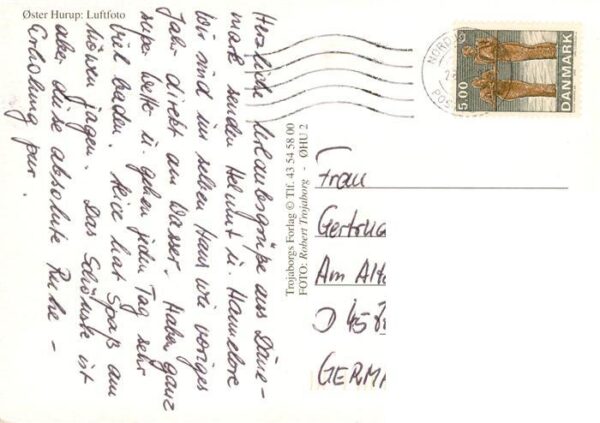 Øster Hurup: Luftfoto
Herzliche Urlaubsgrüße aus Däne-
mark senden Helmut u. Hannelore
Wir sind im selben Haus wie voriges
Jahr direkt am Wasser. Haben ganz
super Wetter u. gehen jeden Tag sehr
viel baden. hat Spaß am
Möwen jagen. Das Schönste ist
aber diese absolute Ruhe –
Erholung pur.
Trojaborgs Forlag © Tlf. 43 54 58 00
FOTO: Robert Trojaborg - ØHU 2
DANMARK
5.00
Frau
Gertru
Am Alt
D 45
GERMA